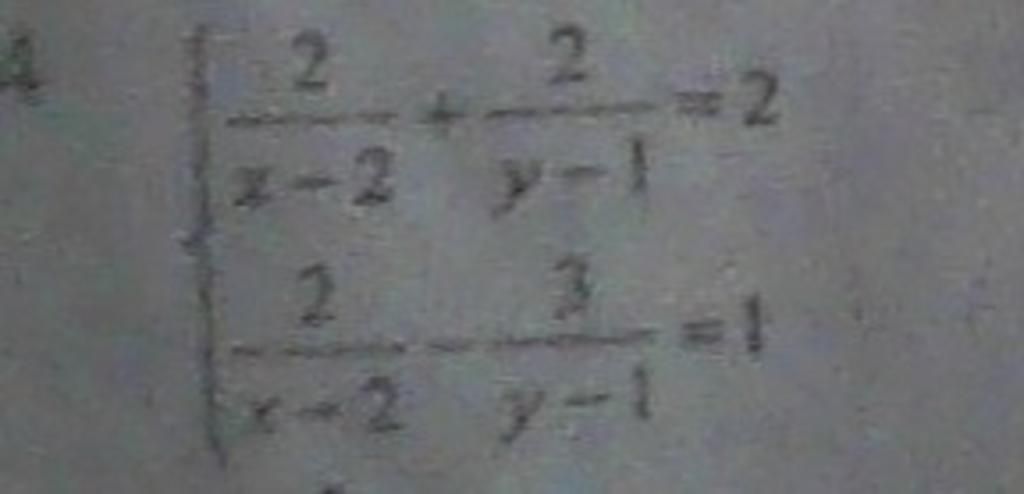 2/(x-2) + 2/(y-1) = 2
2/(x-2) - 3/(y-1) = 1